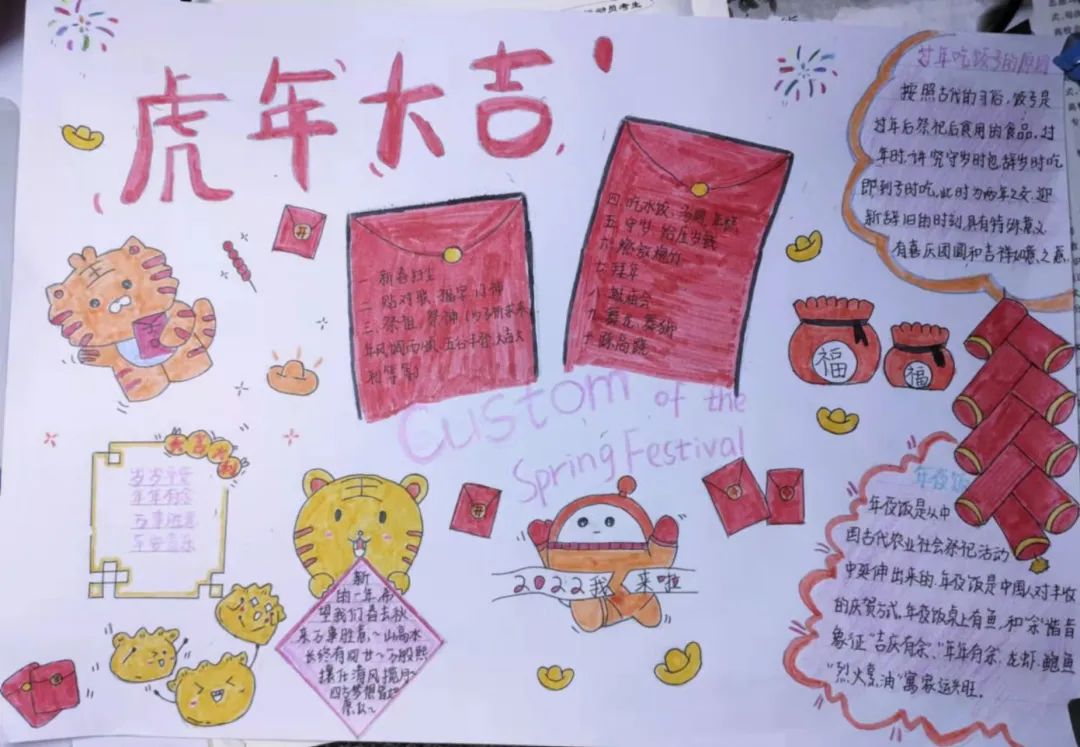 虎年大吉
一 新春扫尘
二 贴对联、福字、门神
三 祭祖、祭神
年风调雨顺、五谷丰登、大吉大
利等等)
四、吃水饺、汤圆、年糕
五、守岁、给压岁钱
六、燃放爆竹
七、拜年
八、逛庙会
九、舞龙、舞狮
开
Custom of the
Spring Festival
过年吃饺子的原因
按照古代的习俗,饺子是
过年后祭祀后食用的食品,过
年时,讲究守岁时包,辞岁时吃
即到子时吃,此时为两年之交,迎
新辞旧的时刻,具有特殊意义
有喜庆团圆和吉祥如意之意.
福
福
岁岁平安
年年有余
万事胜意
平安喜乐
开
新
的一年希
望我们春去秋
来万事胜意~山高水
长终有回甘~万般熙
攘化清风揽月~
2022我来啦
年夜饭
年夜饭是从中
国古代农业社会祭祀活动
中延伸出来的.年夜饭是中国人对丰收
的庆贺方式,年夜饭桌上有鱼,和"余"谐音
象征"吉庆有余"、"年年有余",龙虾、鲍鱼
"烈火烹油"寓家运兴旺。